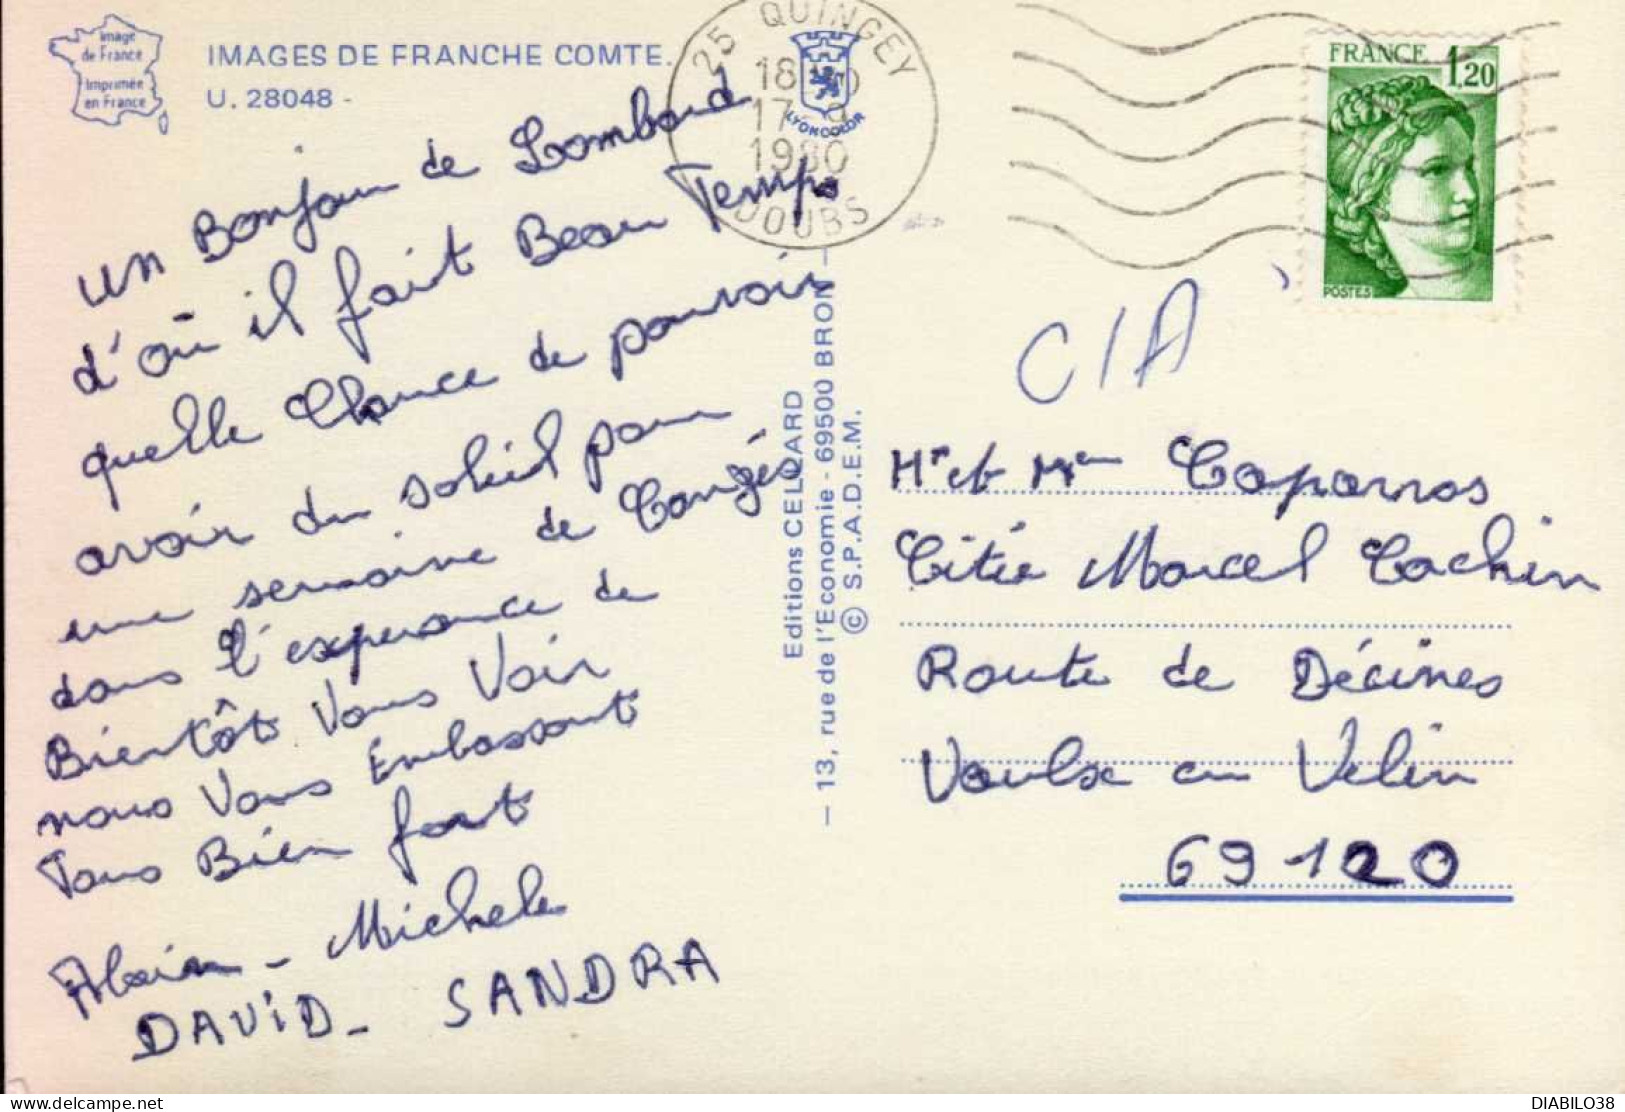 Image
de France
Imprimée
en France
IMAGES DE FRANCHE COMTE.
U. 28048 -
un Bonjour de Lombard
d'où il fait Beau Temps
quelle Chance de pouvoir
avoir du soleil pour
une semaine de Congés
dans l'experance de
Bientôt Vous Voir
nous Vous Embassont
Tous Bien fort
Alain - Michele
DAVID - SANDRA
25 QUINGEY
17-9
1980
DOUBS
LYONCOLOR
Editions CELLARD
— 13, rue de l'Economie - 69500 BRON —
© S.P.A.D.E.M.
FRANCE 1,20
POSTES
C/A
Mr et Mme Caparros
Citée Marcel Cachin
Route de Décines
Vaulx en Velin
69120
DIABILO38